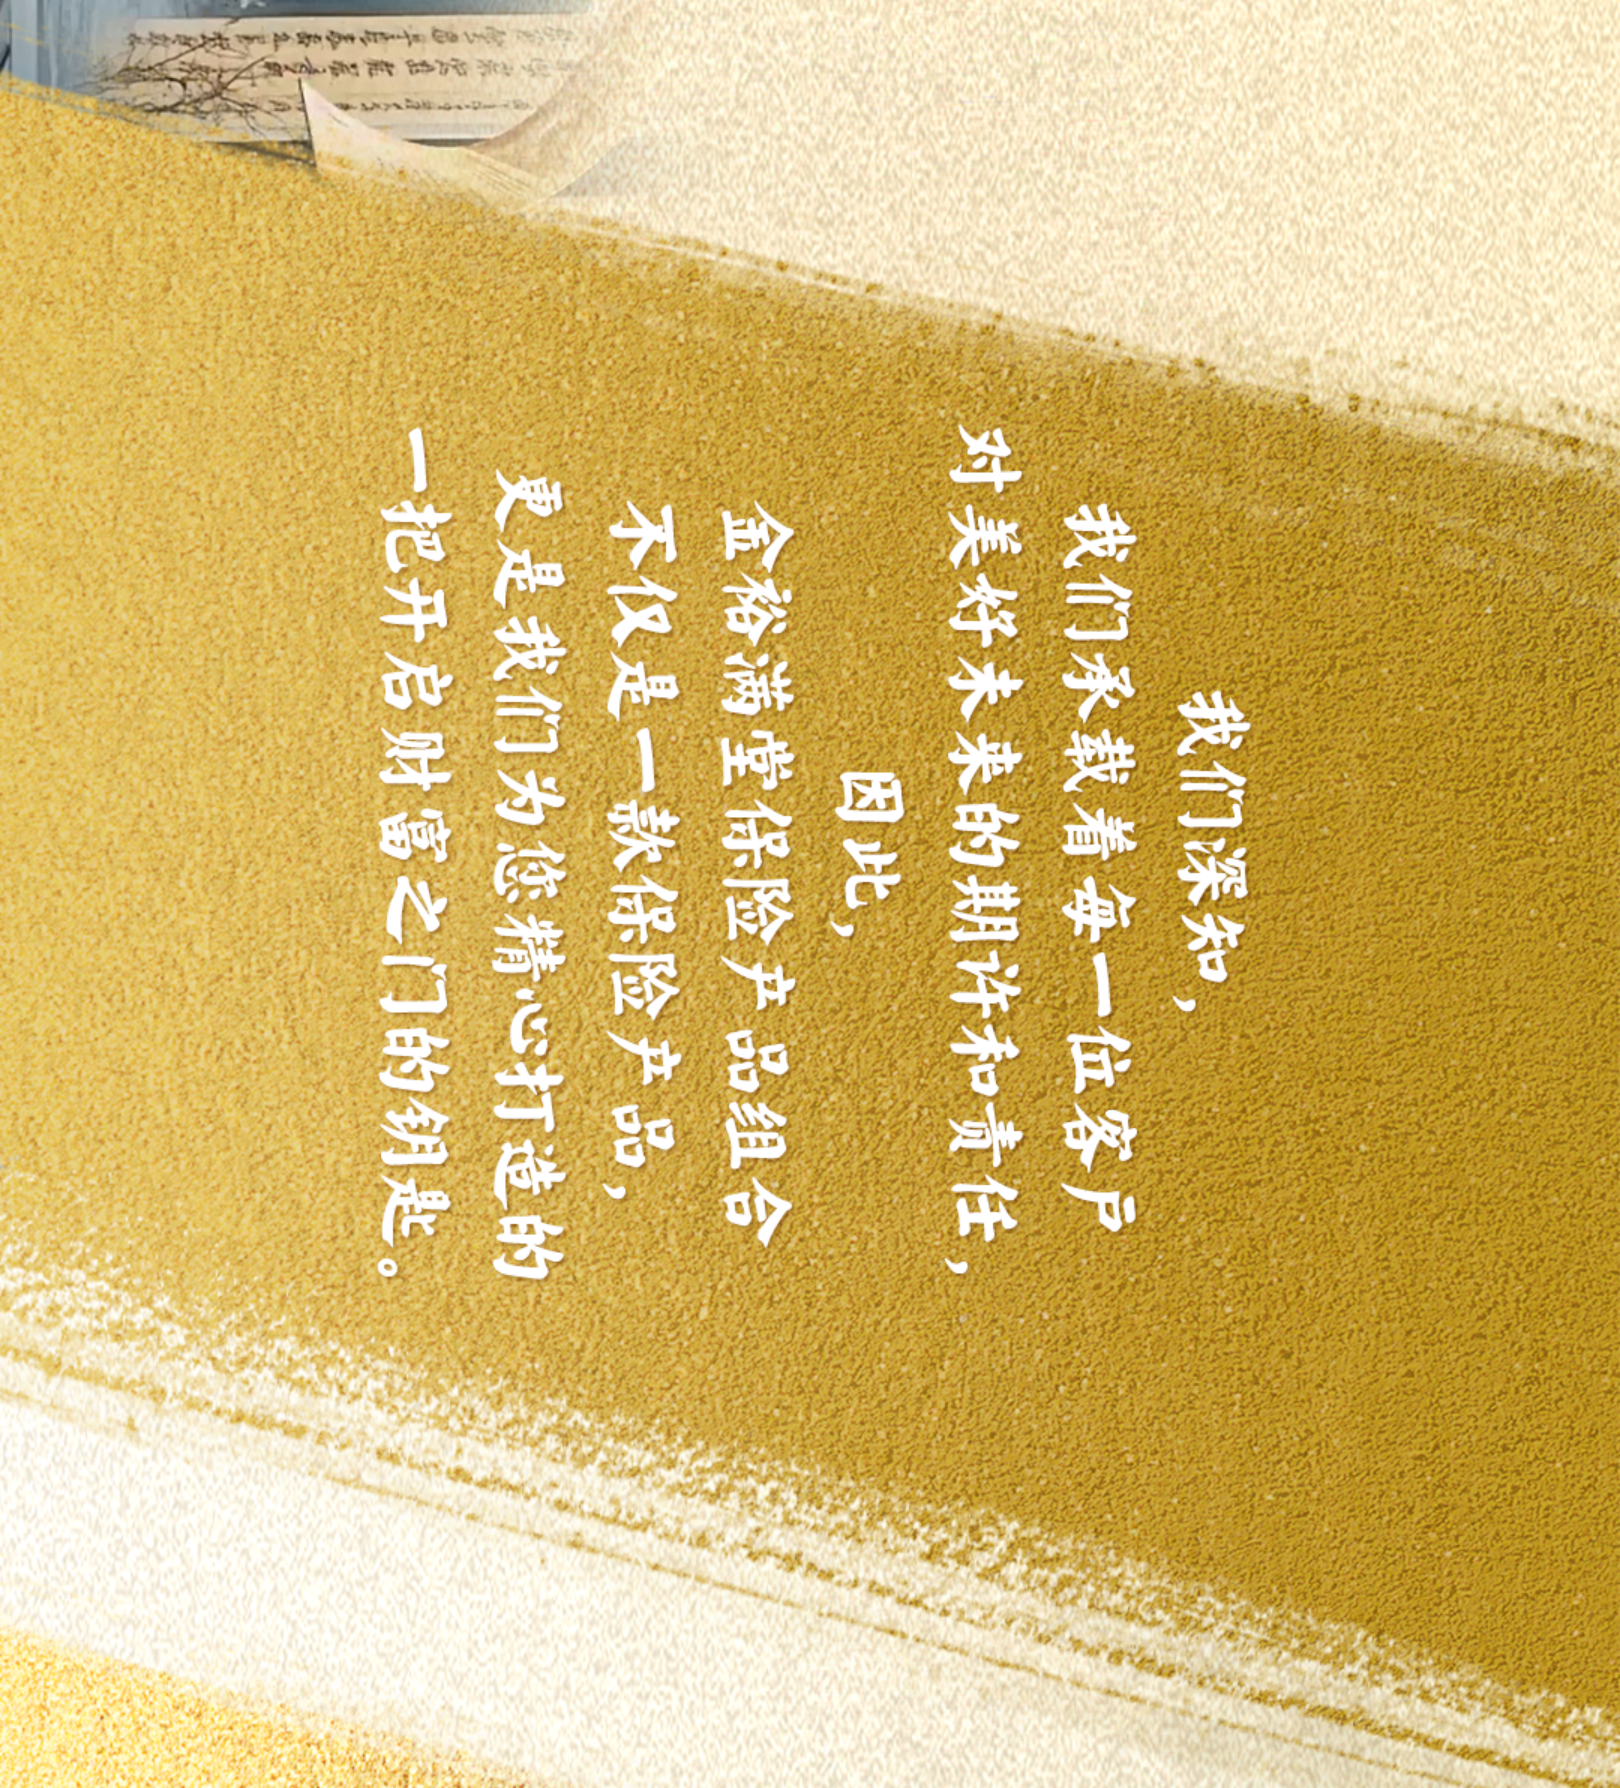 我们深知，
我们承载着每一位客户
对美好未来的期许和责任，
因此，
金裕满堂保险产品组合
不仅是一款保险产品，
更是我们为您精心打造的
一把开启财富之门的钥匙。